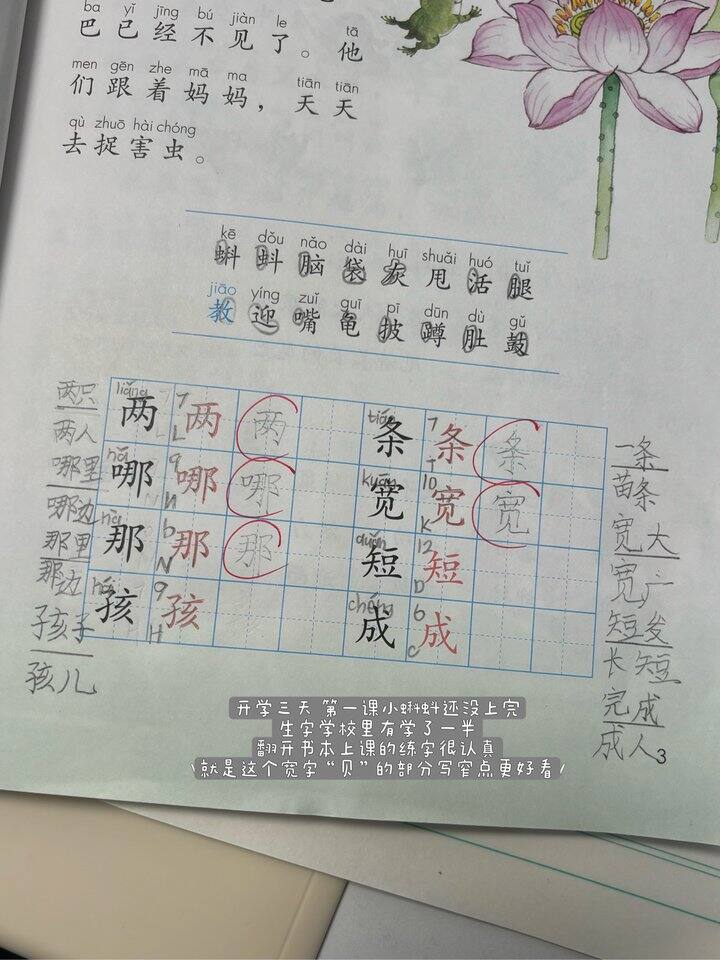 ba yǐ jīng bú jiàn le tā
巴已经不见了。他
men gēn zhe mā ma tiān tiān
们跟着妈妈，天天
qù zhuō hài chóng
去捉害虫。
kē dǒu nǎo dài huī shuǎi huó tuǐ
蝌蚪脑袋灰甩活腿
jiāo yíng zuǐ guī pī dūn dù gǔ
教迎嘴龟披蹲肚鼓
两只
两人
哪里
哪边
那里
那边
孩子
孩儿
liǎng 7 tiáo 7
两 两 两 条 条 条
L T
nǎ 9 kuān 10
哪 哪 哪 宽 宽 宽
N K
nà 6 duǎn 12
那 那 那 短 短
N D
hái 9 chéng 6
孩 孩 成 成
H C
一条
苗条
宽大
宽广
短发
长短
完成
成人
3
开学三天 第一课小蝌蚪还没上完
生字学校里有学了一半
翻开书本上课的练字很认真
就是这个宽字“贝”的部分写窄点更好看